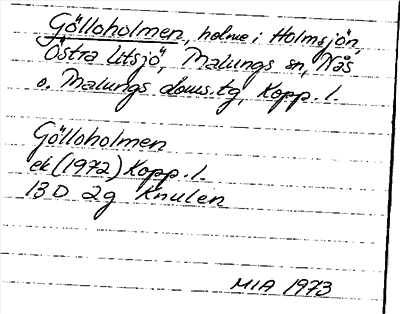 Gölloholmen, holme i Holmsjön,
Östra Utsjö, Malungs sn, Nås
o. Malungs doms.tg, Kopp. l.
Gölloholmen
ek (1972) Kopp. l.
13 D 2g Knulen
MIA 1973